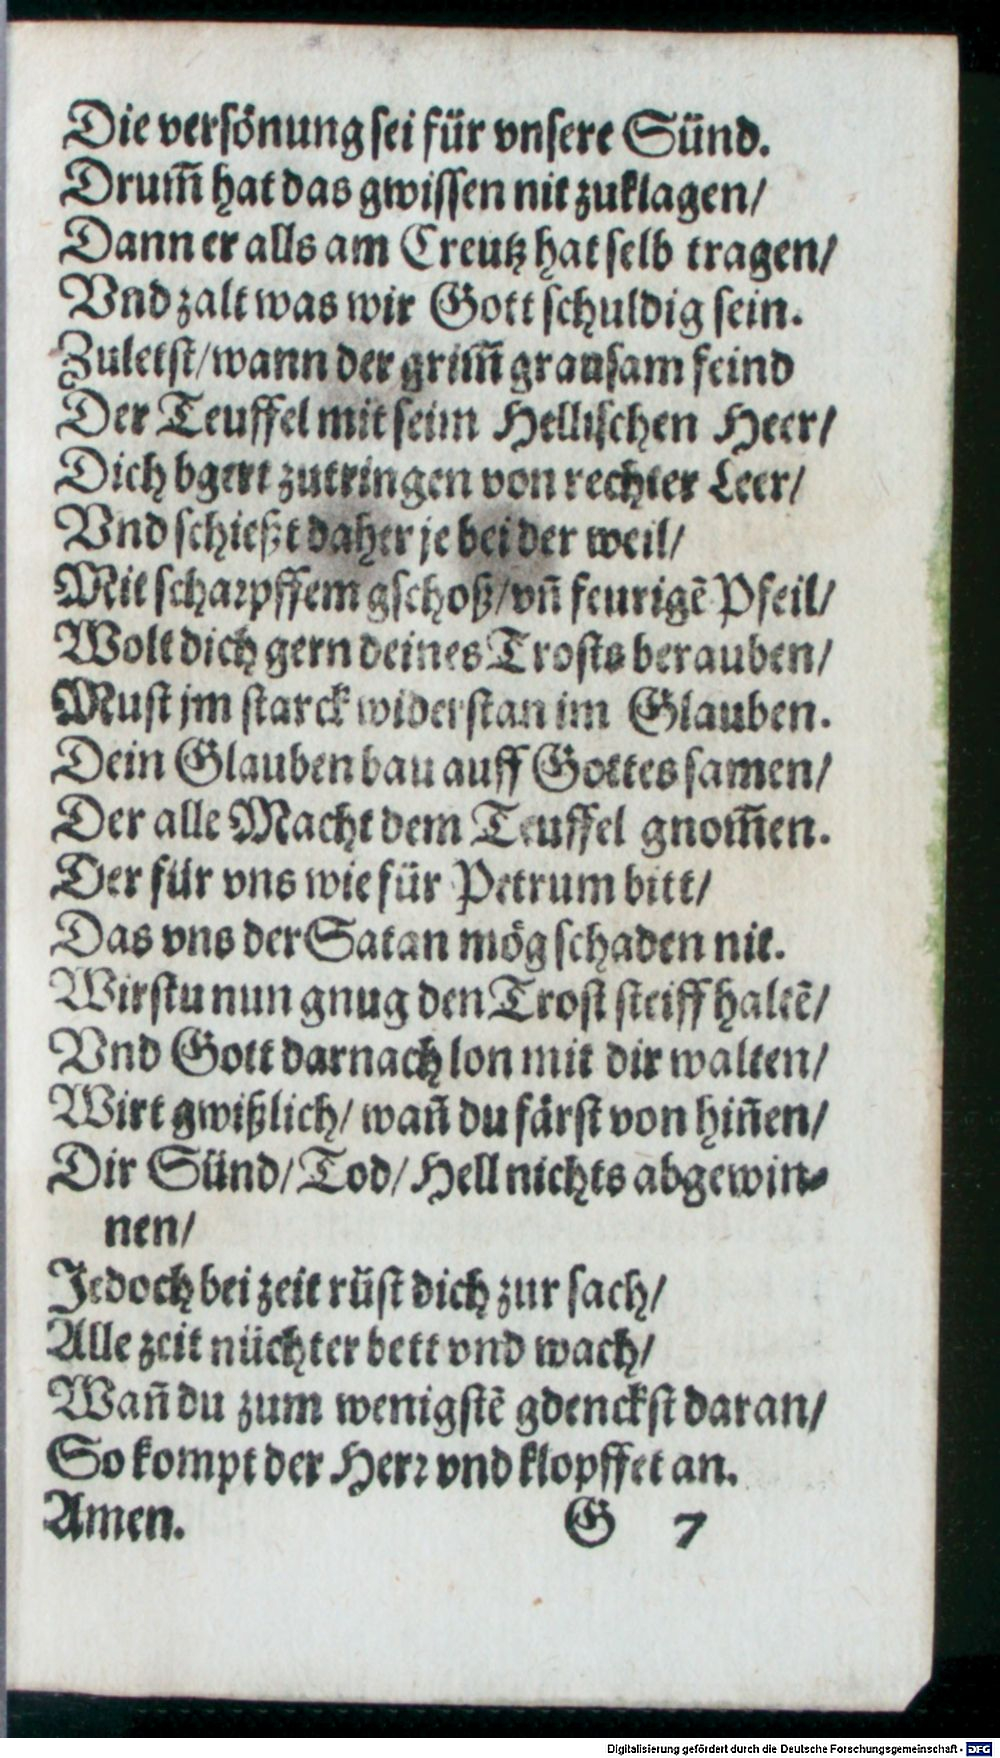 Die versönung sei für vnsere Sünd.
Drum̃ hat das gwissen nit zuklagen/
Dann er alls am Creutz hat selb tragen/
Vnd zalt was wir Gott schuldig sein.
Zuletst/ wann der grim̃ grausam feind
Der Teuffel mit seim Hellischen Heer/
Dich bgert zutringen von rechter Leer/
Vnd schießt daher je bei der weil/
Mit scharpffem gschoß/ vñ feurigẽ Pfeil/
Wolt dich gern deines Trosts berauben/
Must jm starck widerstan im Glauben.
Dein Glauben bau auff Gottes samen/
Der alle Macht dem Teuffel gnom̃en.
Der für vns wie für Petrum bitt/
Das vns der Satan mög schaden nit.
Wirstu nun gnug den Trost steiff haltẽ/
Vnd Gott darnach lon mit dir walten/
Wirt gwißlich/ wañ du färst von hiñen/
Dir Sünd/ Tod/ Hell nichts abgewin-
nen/
Jedoch bei zeit rüst dich zur sach/
Alle zeit nüchter bett vnd wach/
Wañ du zum wenigstẽ gdenckst daran/
So kompt der Herr vnd klopffet an.
Amen. G 7
Digitalisierung gefördert durch die Deutsche Forschungsgemeinschaft - DFG